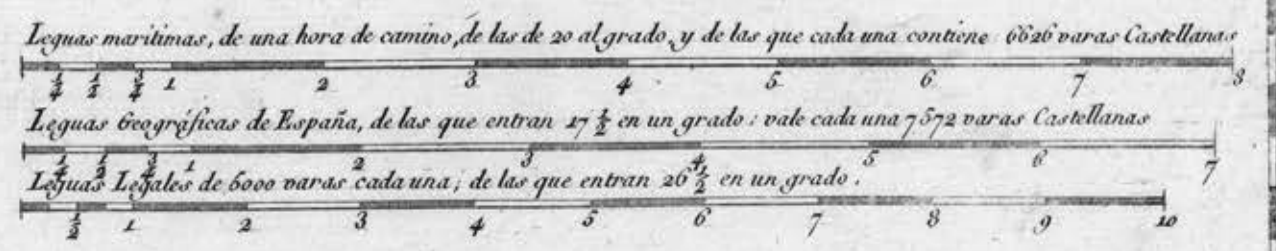 Leguas maritimas, de una hora de camino, de las de 20 al grado, y de las que cada una contiene 6626 varas Castellanas
1/4 1/2 3/4 1 2 3 4 5 6 7 8
Leguas Geograficas de España, de las que entran 17 1/2 en un grado: vale cada una 7572 varas Castellanas
1/4 1/2 3/4 1 2 3 4 5 6 7
Leguas Legales de 6000 varas cada una; de las que entran 26 1/2 en un grado.
1/2 1 2 3 4 5 6 7 8 9 10